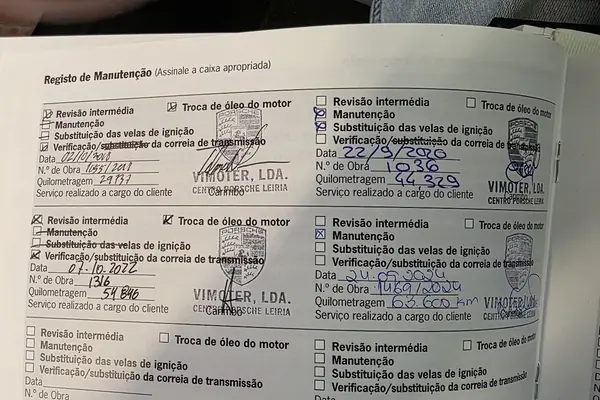 Registo de Manutenção (Assinale a caixa apropriada)
Revisão intermédia Troca de óleo do motor
Manutenção
Substituição das velas de ignição
Verificação/substituição da correia de transmissão
Data 02/10/2018
N.º de Obra /2018
Quilometragem 29737
Serviço realizado a cargo do cliente Carimbo
VIMOTER, LDA.
CENTRO PORSCHE LEIRIA
Revisão intermédia Troca de óleo do motor
Manutenção
Substituição das velas de ignição
Verificação/substituição da correia de
Data 22/9/2020
N.º de Obra 1036
Quilometragem 44.329
Serviço realizado a cargo do cliente Carimbo
VIMOTER, LDA.
CENTRO PORSCHE LEIRIA
Revisão intermédia Troca de óleo do motor
Manutenção
Substituição das velas de ignição
Verificação/substituição da correia de transmissão
Data 07.10.2022
N.º de Obra 1316
Quilometragem 54846
Serviço realizado a cargo do cliente Carimbo
PORSCHE
VIMOTER, LDA.
CENTRO PORSCHE LEIRIA
Revisão intermédia Troca de óleo do motor
Manutenção
Substituição das velas de ignição
Verificação/substituição da correia de transmissão
Data 24.05.2024
N.º de Obra 1469/2024
Quilometragem 63.600 km
Serviço realizado a cargo do cliente Carimbo
Revisão intermédia Troca de óleo do motor
Manutenção
Substituição das velas de ignição
Verificação/substituição da correia de transmissão
Data
N.º de Obra
Revisão intermédia Troca de óleo do
Manutenção
Substituição das velas de ignição
Verificação/substituição da correia de transmissão